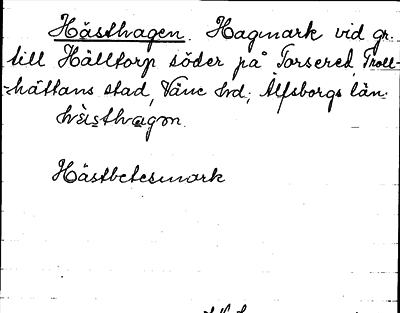 Hästhagen. Hagmark vid gr.
till Hälltorp söder på Torsered, Troll-
hättans stad, Väne hd, Älfsborgs län.
Hästbetesmark